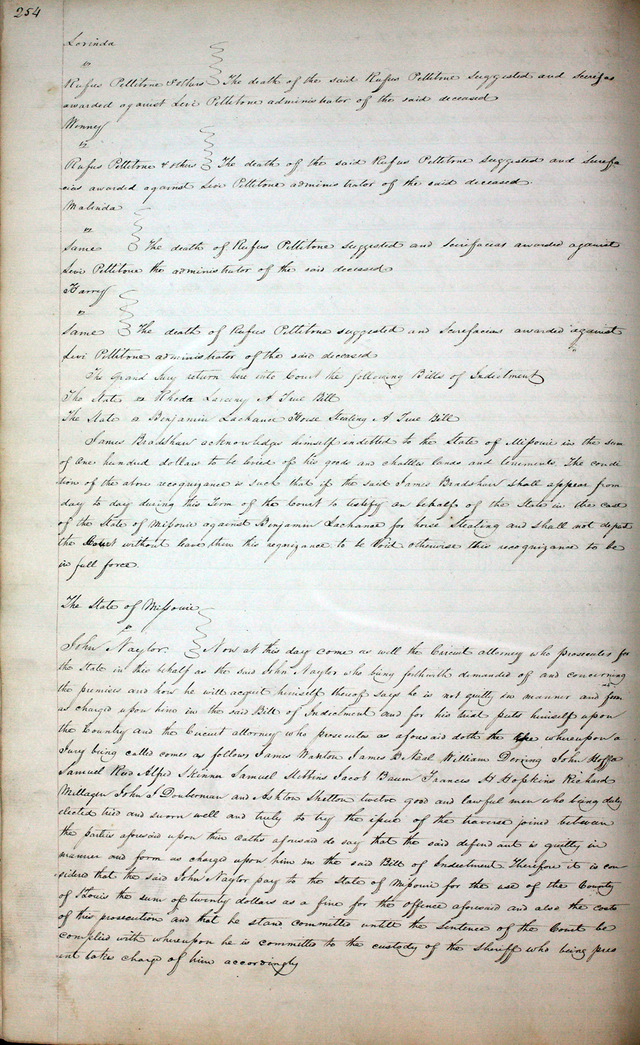 254
Lorinda
vs
Rufus Pettibone & others The death of the said Rufus Pettibone suggested and Scirefas
awarded against Levi Pettibone administrator of the said deceased
Winney
vs
Rufus Pettibone & others The death of the said Rufus Pettibone suggested and Scirefa
cias awarded against Levi Pettibone administrator of the said deceased.
Malinda
vs
Same The death of Rufus Pettibone suggested and Scirefacias awarded against
Levi Pettibone the administrator of the said deceased
Harry
vs
Same The death of Rufus Pettibone suggested and Scirefacias awarded against
Levi Pettibone administrator of the said deceased
The Grand Jury return here into Court the following Bills of Indictment
The State vs Rhoda Larceny A True Bill
The State vs Benjamin Lachance Horse Stealing A True Bill
James Bradshaw acknowledges himself indebted to the State of Missouri in the sum
of One hundred dollars to be levied of his goods and chattles lands and tenements. The condi
tion of the above recognizance is such that if the said James Bradshaw shall appear from
day to day during this Term of the Court to testify on behalf of the State in the case
of the State of Missouri against Benjamin Lachance for horse Stealing and shall not depart
the Court without leave then this recognizance to be Void otherwise this recognizance to be
in full force.
The State of Missouri
vs
John Naylor. Now at this day come as well the Circuit attorney who prosecutes for
the State in this behalf as the said John Naylor who being forthwith demanded of and concerning
the premises and how he will acquit himself thereof says he is not guilty in manner and form
as charged upon him in the said Bill of Indictment and for his trial puts himself upon
the Country and the Circuit attorney who prosecutes as aforesaid doth the like whereupon a
Jury being called comes as follows James Wanton James William Derring John
Samuel Reed Alfred Skinner Samuel Stebbins Jacob Frances H Hopkins Richard
Millager John and Ashton Shelton twelve good and lawful men who being duly
elected tried and sworn well and truly to try the issue of the traverse joined between
the parties aforesaid upon their Oaths aforesaid do say that the said defendant is guilty in
manner and form as charged upon him in the said Bill of Indictment Therefore it is con
sidered that the said John Naylor pay to the State of Missouri for the use of the County
of St Louis the sum of twenty dollars as a fine for the offence aforesaid and also the costs
of this prosecution and that he stand committed untill the Sentence of the Court be
complied with whereupon he is committed to the custody of the Sheriff who being pres
ent takes charge of him accordingly